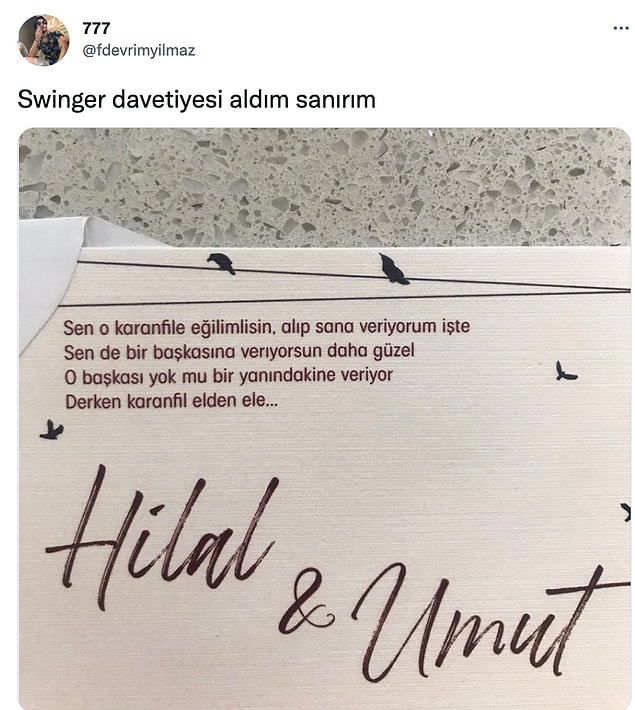 777
@fdevrimyilmaz
Swinger davetiyesi aldım sanırım
Sen o karanfile eğilimlisin, alıp sana veriyorum işte
Sen de bir başkasına veriyorsun daha güzel
O başkası yok mu bir yanındakine veriyor
Derken karanfil elden ele...
Hilal
& Umut